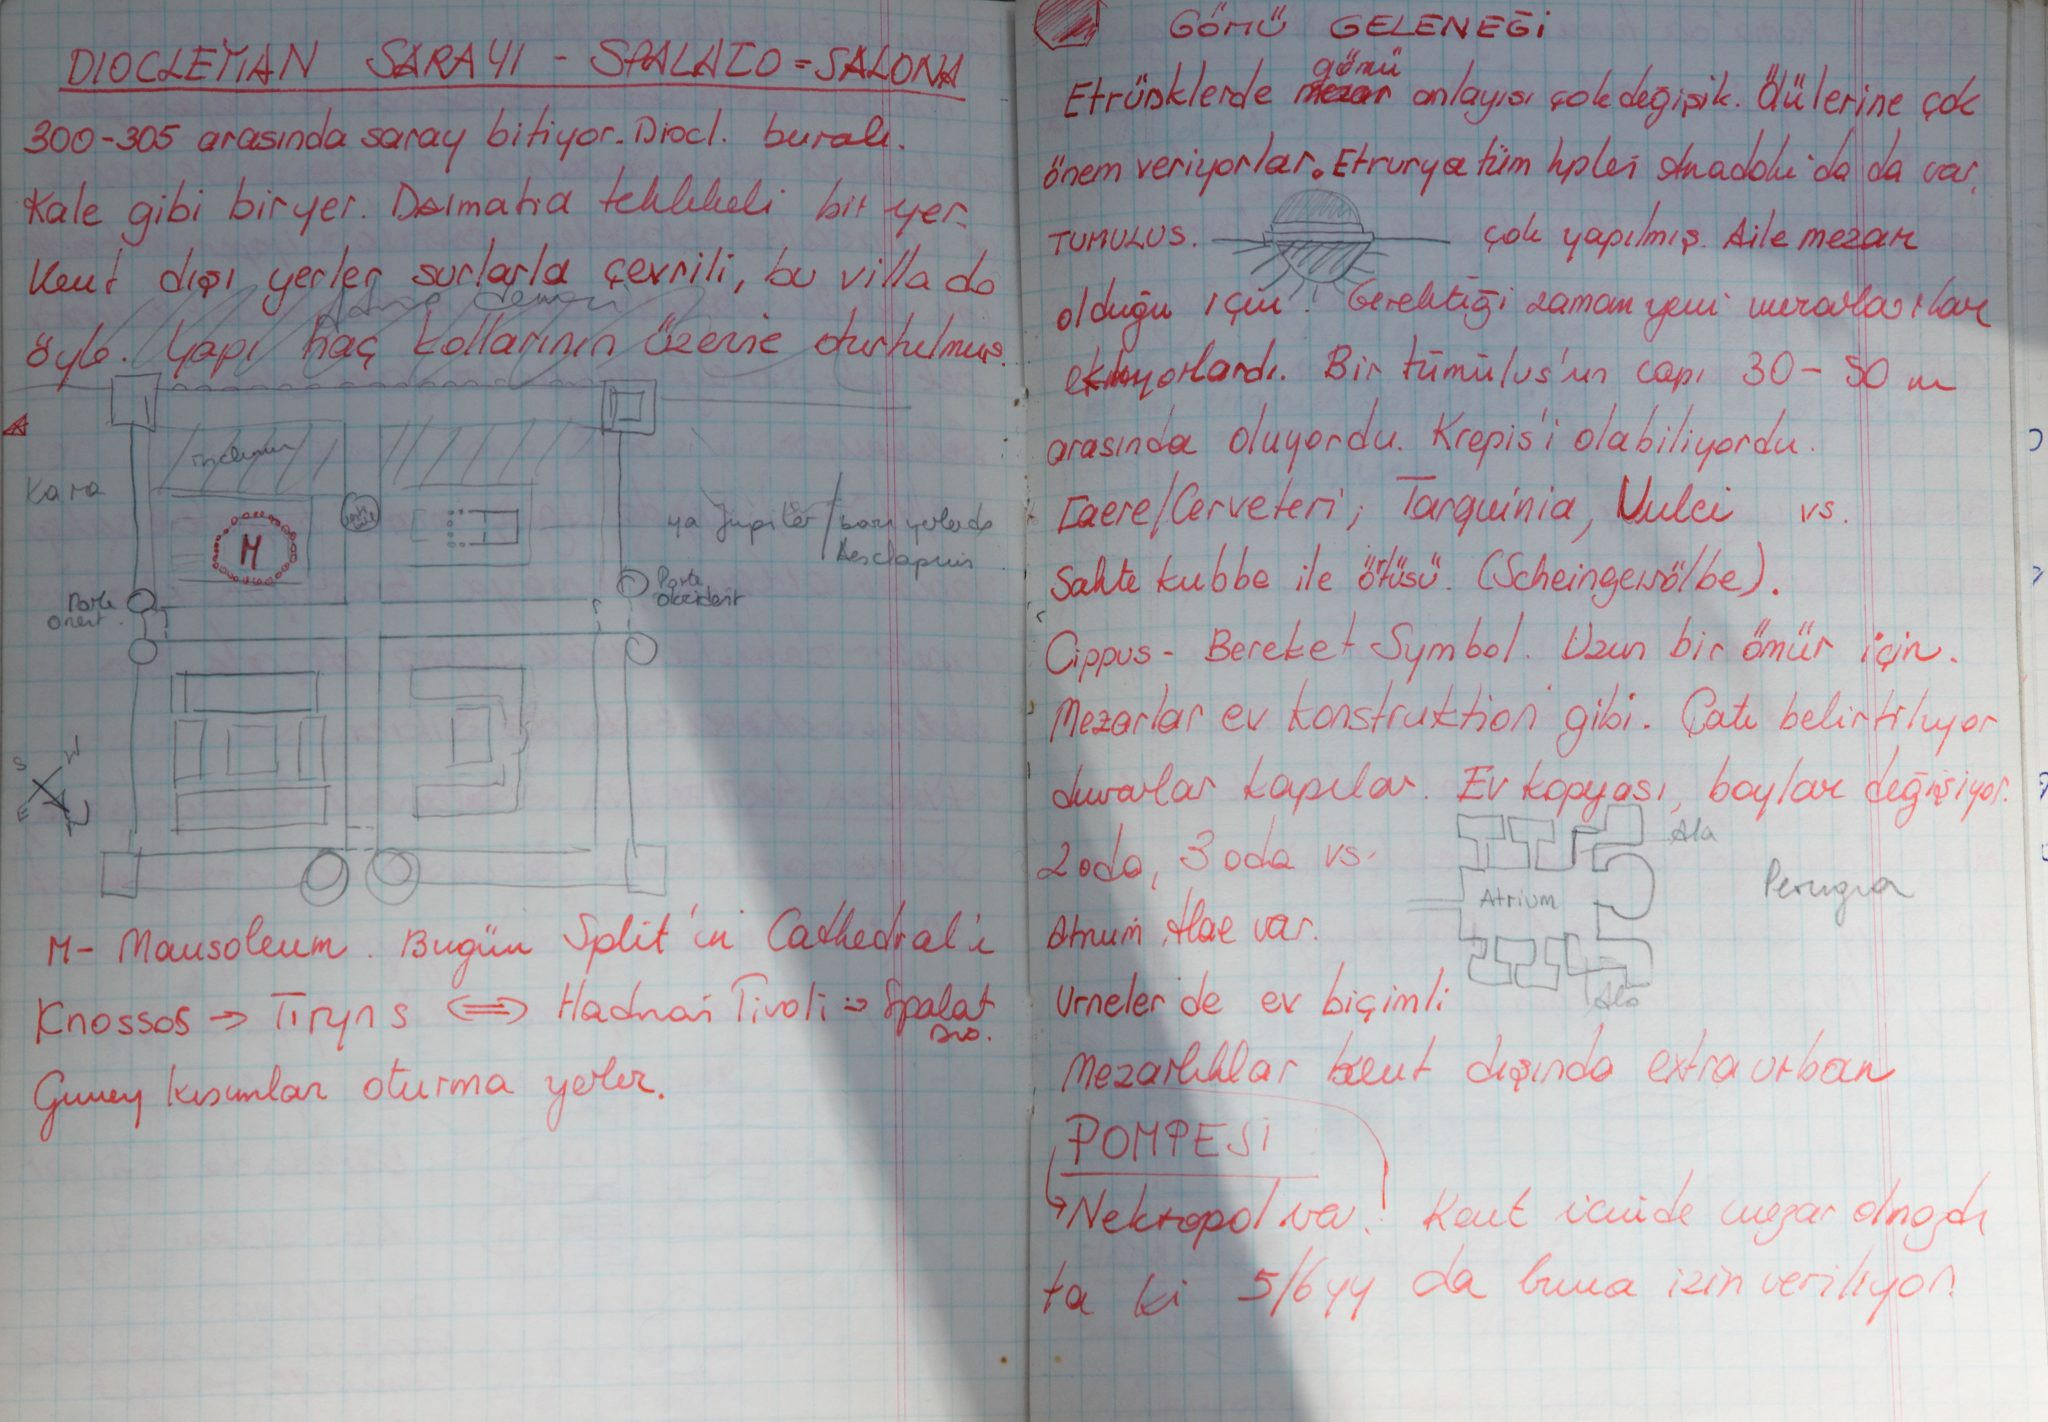 DIOCLETIAN SARAYI - SPALATO = SALONA
300-305 arasında saray bitiyor. Diocl. buralı.
Kale gibi bir yer. Dalmatia tehlikeli bir yer.
Kent dışı yerler surlarla çevrili, bu villa da
öyle. Yapı haç kollarının üzerine oturtulmuş.
Kara
M
ya Jupiter / bazı yerlerde
Aesclapius
Porte
orient.
Porte
occident
S W
E N
M- Mausoleum. Bugün Split'in Cathedral'i
Knossos → Tiryns ⟺ Hadrian Tivoli → Spalat
Guney kısımlar oturma yerler.
GÖMÜ GELENEĞİ
Etrüsklerde gömü anlayısı çok değişik. Ölülerine çok
önem veriyorlar. Etrurya tüm tipleri Anadolu'da da var.
TUMULUS. çok yapılmış. Aile mezar
olduğu için. Gerektiği zaman yeni mezar
ekliyorlardı. Bir tümülus'un capı 30-50 m
arasında oluyordu. Krepis'i olabiliyordu.
Caere/Cerveteri; Tarquinia, Vulci vs.
Sahte kubbe ile örtüsü. (Scheingewölbe).
Cippus - Bereket Symbol. Uzun bir ömür için.
Mezarlar ev konstruktion gibi. Çatı belirtiliyor
duvarlar kapılar. Ev kopyası, boylar değişiyor.
2 oda, 3 oda vs.
Atrium, Alae var.
Ala
Atrium
Perugia
Ala
Urneler de ev biçimli
Mezarlıklar kent dışında extra urban
POMPESİ
→ Nekropol var. Kent icinde mezar olmazdı
ta ki 5/6 yy da buna izin veriliyor.